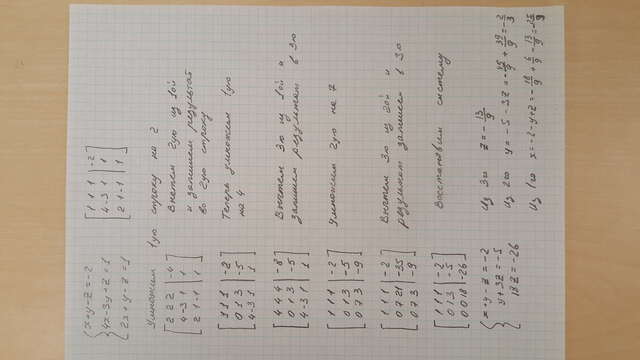 x+y-z=-2
4x-3y+z=1
2x+y-z=1
1 1 1 | -2
4 -3 1 | 1
2 1 -1 | 1
Умножим 1ую строку на 2
2 2 2 | -4
4 -3 1 | 1
2 1 -1 | 1
Вычтем 2ую из 1ой
и запишем результат
во 2ую строку
1 1 1 | -2
0 1 3 | -5
4 -3 1 | 1
Теперь умножим 1ую
на 4
4 4 4 | -8
0 1 3 | -5
4 -3 1 | 1
Вычтем 3ю из 1ой и
запишем результат в 3ю
1 1 1 | -2
0 1 3 | -5
0 7 3 | -9
Умножим 2ую на 7
1 1 1 | -2
0 7 21 | -35
0 7 3 | -9
Вычтем 3ю из 2ой и
результат запишем в 3ю
1 1 1 | -2
0 1 3 | -5
0 0 18 | -26
Восстановим систему
x+y-z=-2
y+3z=-5
18z=-26
Из 3го z=-13/9
Из 2го y=-5-3z=-45/9+39/9=-2/3
Из 1го x=-2-y+z=-18/9+6/9-13/9=-25/9